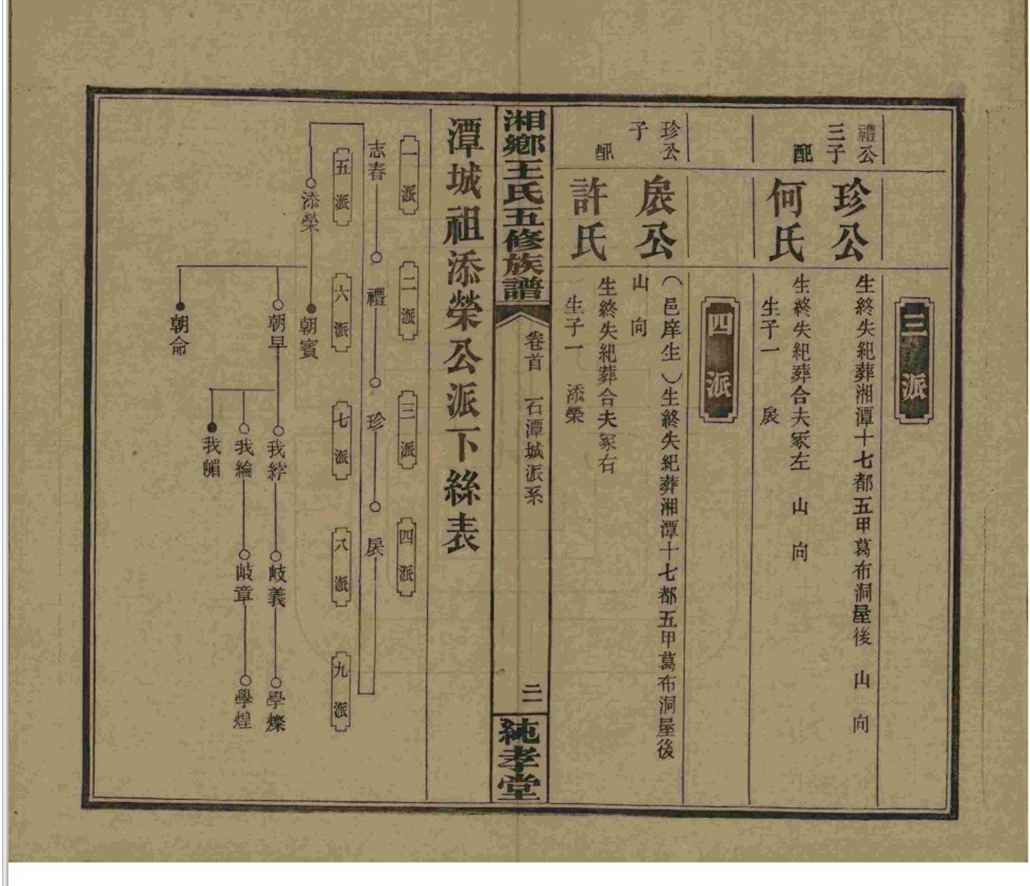 三派
禮公三子
珍公
生終失紀葬湘潭十七都五甲葛布洞屋後　山　向
配
何氏
生終失紀葬合夫冢左　山　向
生子一　扆
四派
珍公子
扆公
（邑庠生）生終失紀葬湘潭十七都五甲葛布洞屋後
山　向
配
許氏
生終失紀葬合夫冢右
生子一　添榮
湘鄉王氏五修族譜
卷首　石潭城派系
二一
純孝堂
潭城祖添榮公派下絲表
一派　二派　三派　四派
志春　禮　珍　扆
五派　六派　七派　八派　九派
添榮　朝賓
朝早　我綍　岐義　學爍
我綸　岐章　學煌
我郿
朝命